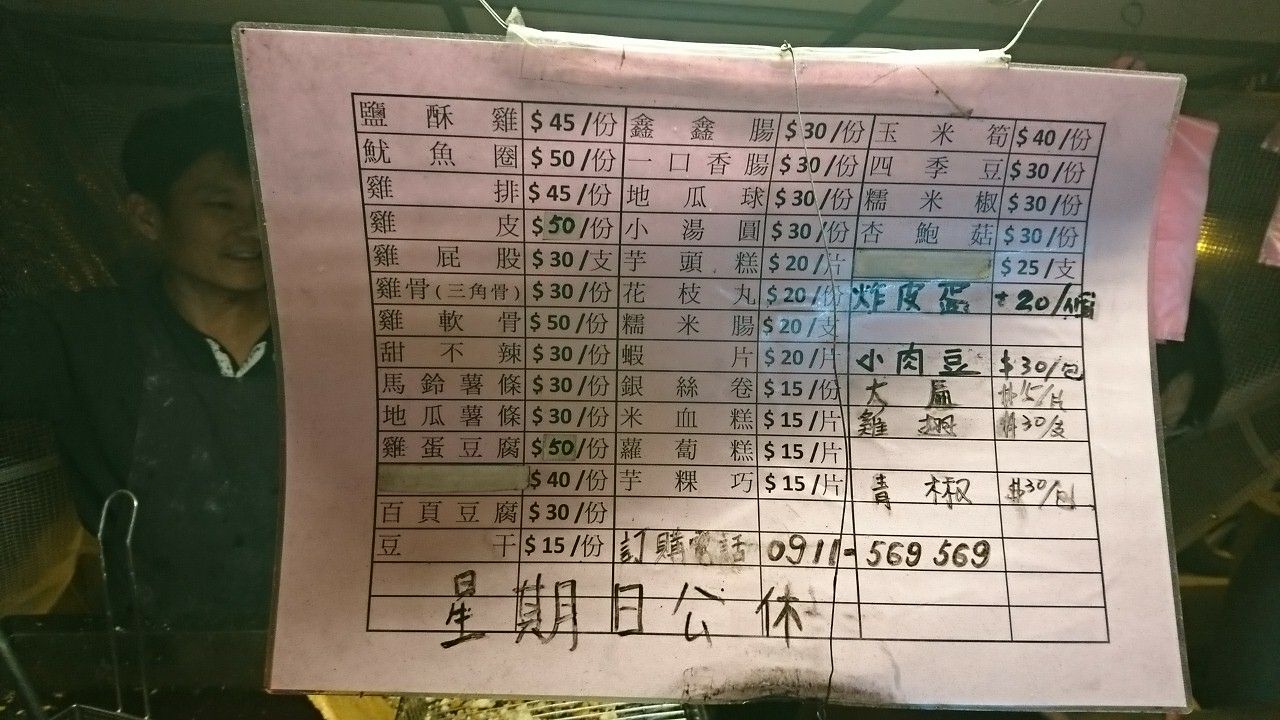 鹽酥雞 $45/份 鑫鑫腸 $30/份 玉米筍 $40/份
魷魚圈 $50/份 一口香腸 $30/份 四季豆 $30/份
雞排 $45/份 地瓜球 $30/份 糯米椒 $30/份
雞皮 $50/份 小湯圓 $30/份 杏鮑菇 $30/份
雞屁股 $30/支 芋頭糕 $20/片 $25/支
雞骨(三角骨) $30/份 花枝丸 $20/份 炸皮蛋 20/個
雞軟骨 $50/份 糯米腸 $20/支
甜不辣 $30/份 蝦片 $20/片 小肉豆 $30/包
馬鈴薯條 $30/份 銀絲卷 $15/份 大扁 $15/片
地瓜薯條 $30/份 米血糕 $15/片 雞翅 $30/支
雞蛋豆腐 $50/份 蘿蔔糕 $15/片
$40/份 芋粿巧 $15/片 青椒 $30/包
百頁豆腐 $30/份
豆干 $15/份 訂購電話 0911-569569
星期日公休